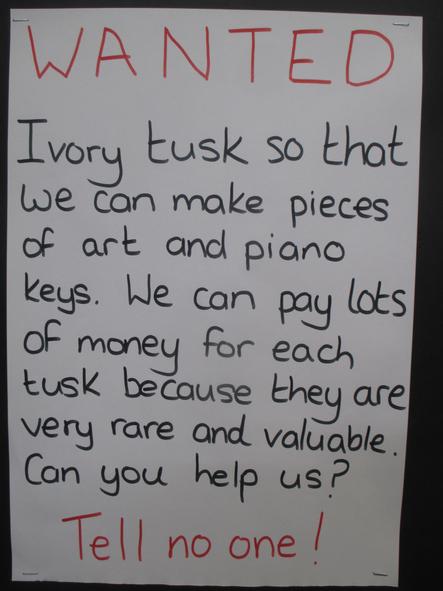 WANTED
Ivory tusk so that
we can make pieces
of art and piano
keys. We can pay lots
of money for each
tusk because they are
very rare and valuable.
Can you help us?
Tell no one!